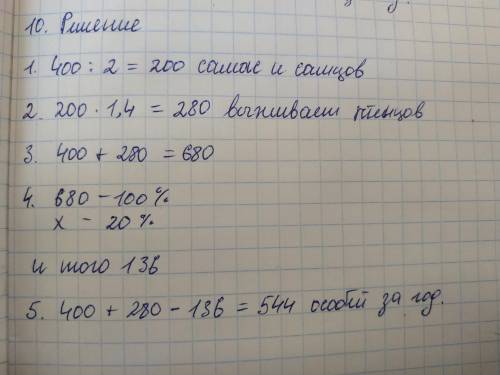 10. Решение
1. 400 : 2 = 200 самок и самцов
2. 200 · 1,4 = 280 выживает птенцов
3. 400 + 280 = 680
4. 680 – 100%
х – 20%
и того 136
5. 400 + 280 – 136 = 544 особей за год.